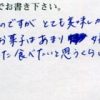 でお書き下さい。
のですが、とても美味しか
お菓子はあまり
た食べたいと思うくらい